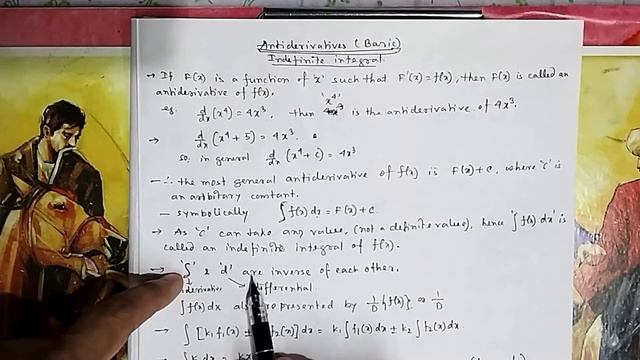 Antiderivatives (Basic)
Indefinite integral.
→ If F(x) is a function of 'x' such that F'(x) = f(x), then F(x) is called an
antiderivative of f(x).
eg. d/dx (x⁴) = 4x³, then 'x⁴' is the antiderivative of 4x³.
→ d/dx (x⁴ + 5) = 4x³.
so in general d/dx (x⁴ + c) = 4x³
— ∴ the most general antiderivative of f(x) is F(x) + c, where 'c' is
an arbitary constant.
— symbolically ∫ f(x) dx = F(x) + c
→ As 'c' can take any value, (not a definite value), hence '∫ f(x) dx' is
called an indefinite integral of f(x).
→ '∫' & 'd' are inverse of each other.
differential.
∫ f(x) dx also represented by 1/D {f(x)} or 1/D
→ ∫ [k₁ f₁(x) ± f₂(x)] dx = k₁ ∫ f₁(x) dx ± k₂ ∫ f₂(x) dx.